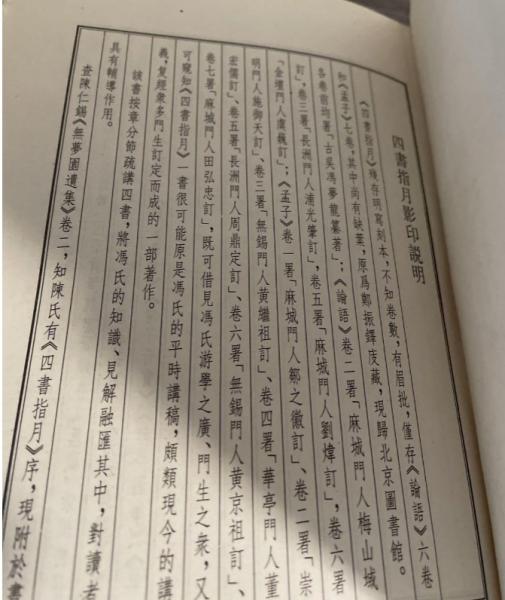 四書指月影印説明
《四書指月》殘存明寫刻本，不知卷數，有眉批，僅存《論語》六卷
和《孟子》七卷，其中尚有缺葉、原爲鄭振鐸庋藏，現歸北京圖書館。
各卷前均署「古吳馮夢龍纂著」；《論語》卷二署「麻城門人梅山城
訂」，卷三署「長洲門人浦光肇訂」，卷五署「麻城門人劉煒訂」，卷六署
「金壇門人虞巍訂」；《孟子》卷一署「麻城門人鄒之徽訂」、卷二署「崇
明門人施御天訂」、卷三署「無錫門人黄繼祖訂」、卷四署「華亭門人董
宏儒訂」、卷五署「長洲門人周鼎定訂」、卷六署「無錫門人黄京祖訂」、
卷七署「麻城門人田弘忠訂」，既可借見馮氏游學之廣、門生之衆，又
可窺知《四書指月》一書很可能原是馮氏的平時講稿，頗類現今的講
義，复經衆多門生訂定而成的一部著作。
該書按章分節疏講四書，將馮氏的知識、見解融匯其中，對讀者
具有輔導作用。
查陳仁錫《無夢園遺集》卷二，知陳氏有《四書指月》序，現附於書